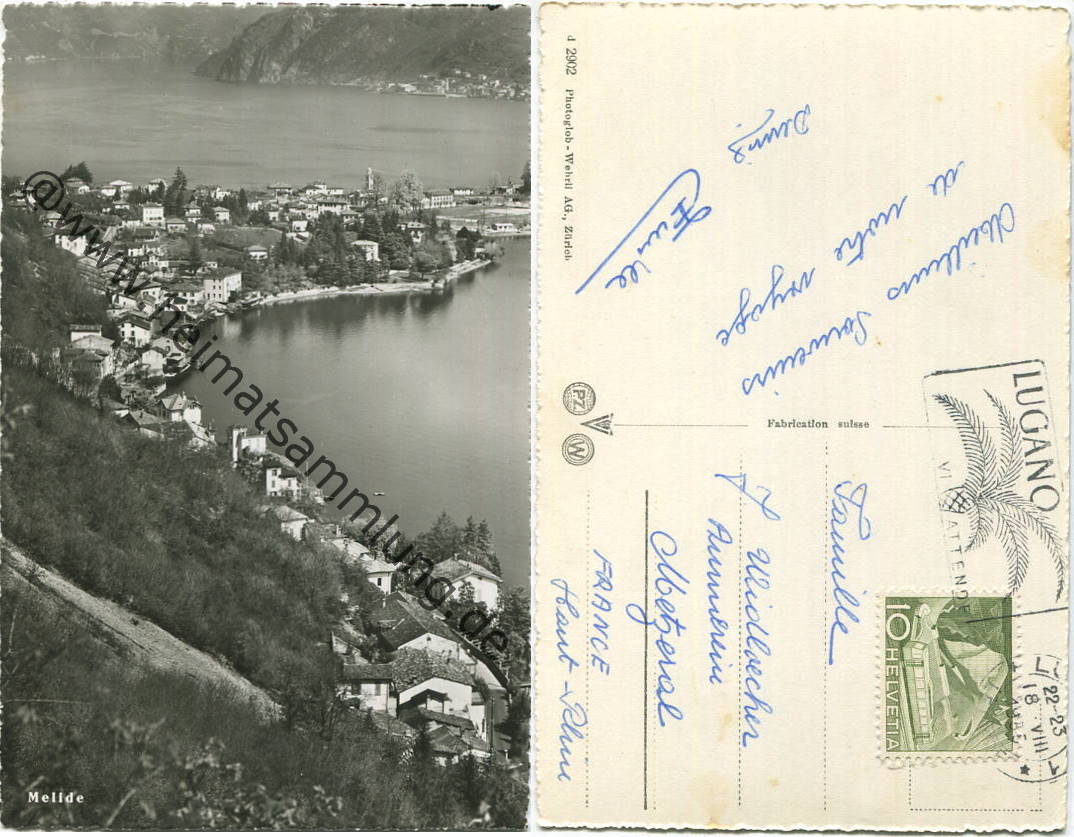 Melide
@www.heimatsammlung.de
d 2902 Photoglob-Wehrli AG., Zürich
Meilleurs Souvenirs
de notre voyage
Denis
PZ
W
Fabrication suisse
Famille
J Widloecher
Ammerein
Metzeral
Haut-Rhin
FRANCE
LUGANO
VI ATTENDE
10
HELVETIA
22-23
18 VIII